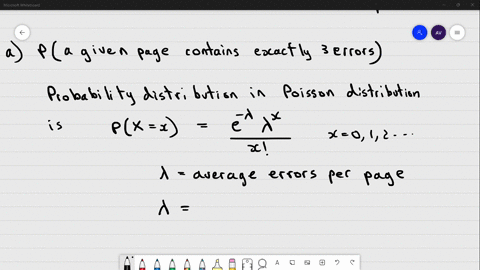 a) P(a given page contains exactly 3 errors)
Probability distribution in Poisson distribution
is P(X=x) = e^{-λ} λ^x / x! x=0,1,2....
λ = average errors per page
λ =